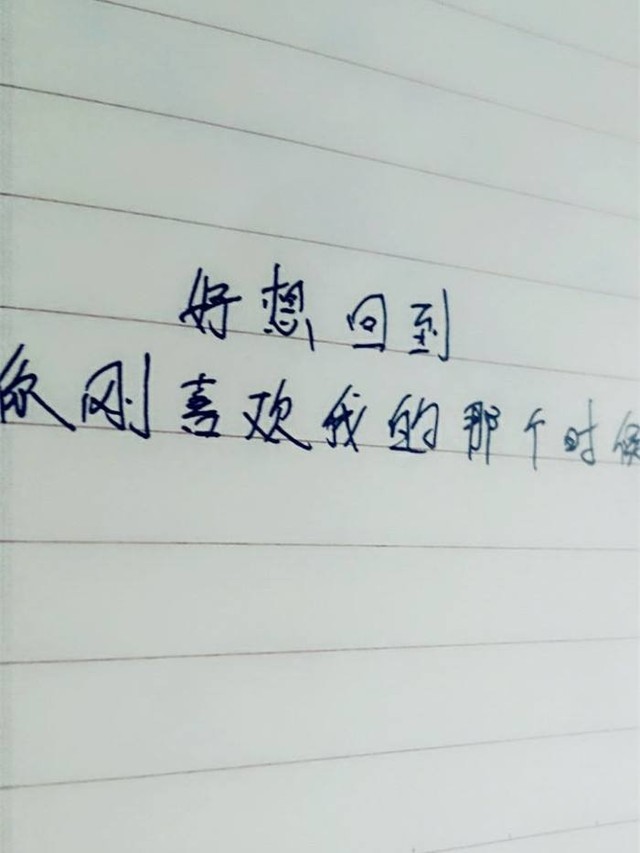 好想回到
你刚喜欢我的那个时候